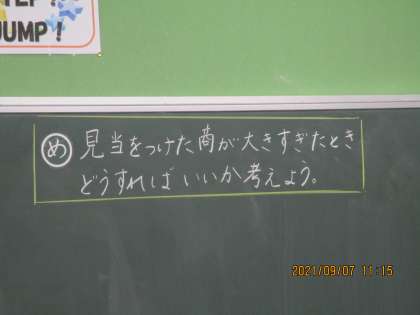 JUMP！
め 見当をつけた商が大きすぎたとき
どうすればいいか考えよう。
2021/09/07 11:15